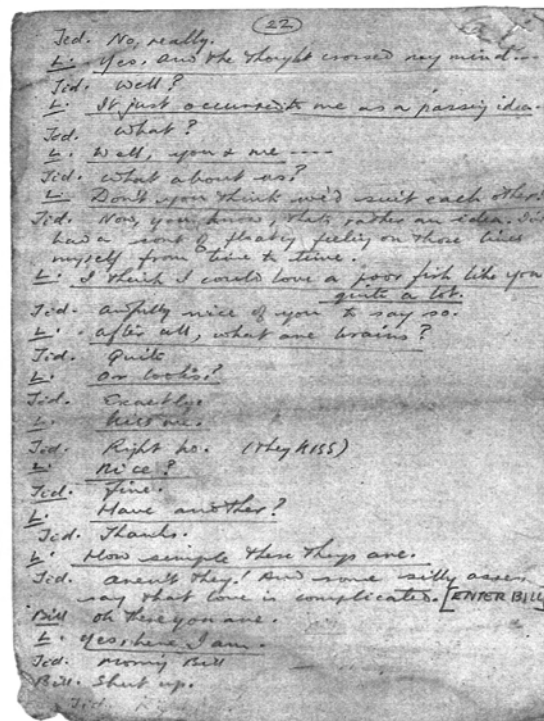 22
Ted. No, really.
L. Yes, and the thought crossed my mind....
Ted. Well?
L. It just occurred to me as a passing idea.
Ted. What?
L. Well, you & me ----
Ted. What about us?
L. Don't you think we'd suit each other?
Ted. Now, you know, that's rather an idea. I've
had a sort of floaty feeling on those lines
myself from time to time.
L. I think I could love a poor fish like you
quite a lot.
Ted. Awfully nice of you to say so.
L. After all, what are brains?
Ted. Quite
L. Or looks?
Ted. Exactly.
L. Kiss me.
Ted. Right ho. (They KISS)
L. Nice?
Ted. Fine.
L. Have another?
Ted. Thanks.
L. How simple these things are.
Ted. Aren't they! And some silly asses
say that love is complicated. [ENTER BILL]
Bill Oh there you are.
L. Yes, here I am.
Ted. Morning Bill
Bill. Shut up.
Ted.